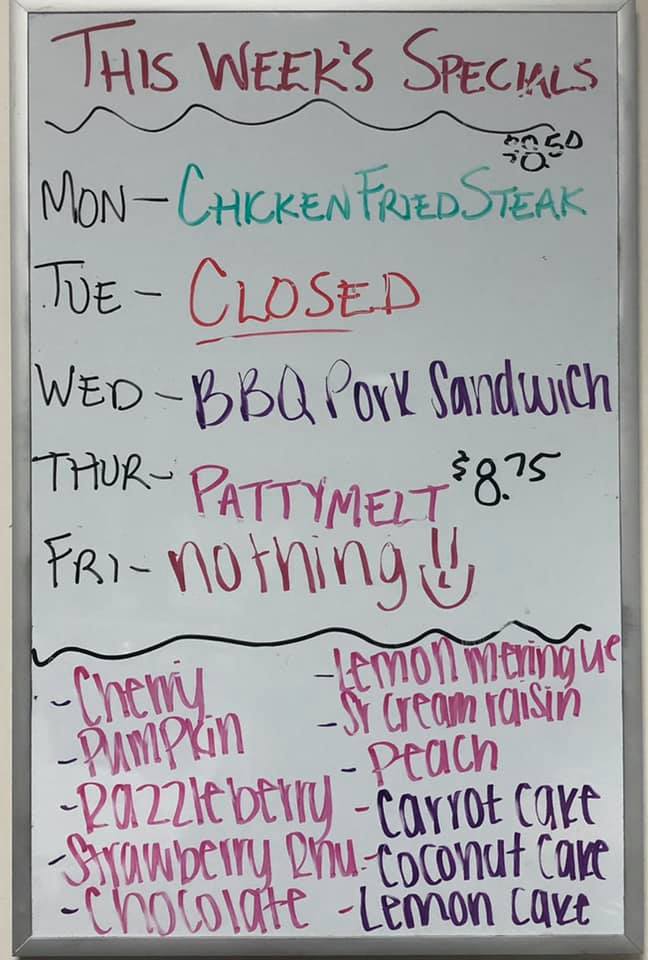 THIS WEEK'S SPECIALS
MON - CHICKEN FRIED STEAK
TUE - CLOSED
WED - BBQ Pork Sandwich
THUR - PATTYMELT $8.75
FRI - nothing
- Cherry
- Pumpkin
- Razzleberry
- Strawberry Rhu.
- Chocolate
- Lemon meringue
- Sr Cream raisin
- Peach
- Carrot Cake
- Coconut Cake
- Lemon Cake